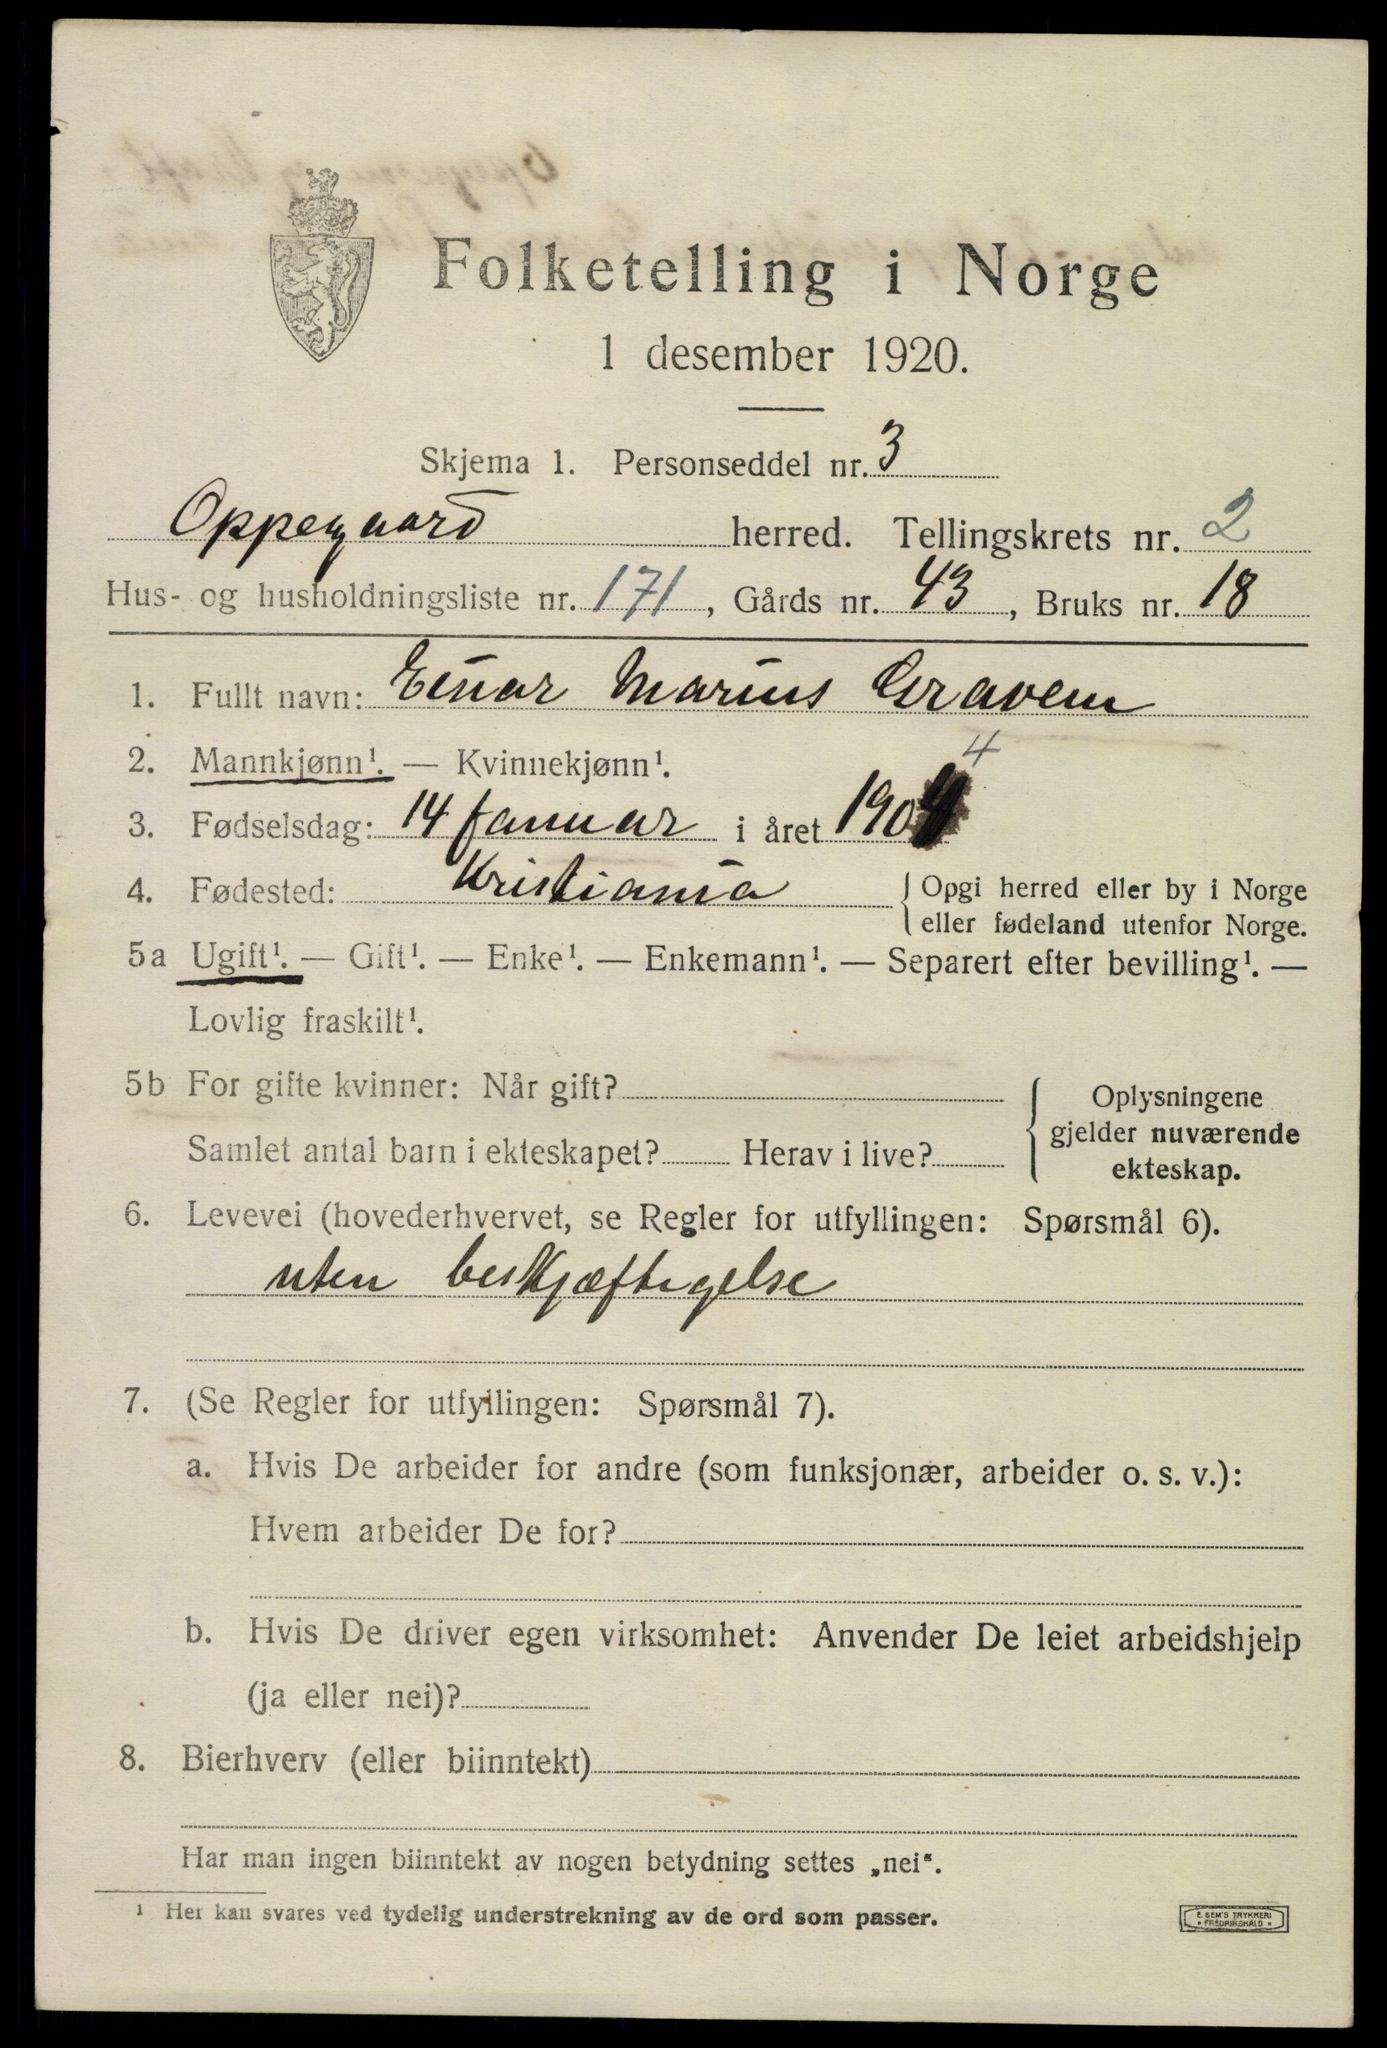 Folketelling i Norge
1 desember 1920.
Skjema 1. Personseddel nr. 3
Oppegaard herred. Tellingskrets nr. 2
Hus- og husholdningsliste nr. 171, Gårds nr. 43, Bruks nr. 18
1. Fullt navn: Einar Marius Gravem
2. Mannkjønn¹. — Kvinnekjønn¹.
4
3. Fødselsdag: 14 januar i året 1904
4. Fødested: Kristiania { Opgi herred eller by i Norge
eller fødeland utenfor Norge.
5a Ugift¹. — Gift¹. — Enke¹. — Enkemann¹. — Separert efter bevilling¹. —
Lovlig fraskilt¹.
5b For gifte kvinner: Når gift? { Oplysningene
gjelder nuværende
Samlet antal barn i ekteskapet? Herav i live?
ekteskap.
6. Levevei (hovederhvervet, se Regler for utfyllingen: Spørsmål 6).
uten beskjæftigelse
7. (Se Regler for utfyllingen: Spørsmål 7).
a. Hvis De arbeider for andre (som funksjonær, arbeider o. s. v.):
Hvem arbeider De for?
b. Hvis De driver egen virksomhet: Anvender De leiet arbeidshjelp
(ja eller nei)?
8. Bierhverv (eller biinntekt)
Har man ingen biinntekt av nogen betydning settes „nei".
¹ Her kan svares ved tydelig understrekning av de ord som passer.
E. SEM'S TRYKKERI
• FREDRIKSHALD •